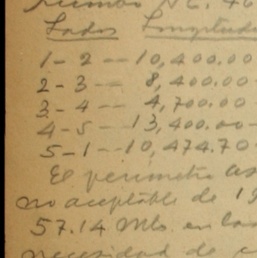 rumbo N.E. 46
Lados Longitudes
1 - 2 -- 10,400.00
2 - 3 -- 8,400.00
3 - 4 -- 4,700.00
4 - 5 - 13,400.00
5 - 1 - 10,474.70
El perimetro as
no aceptable de 19
57.14 Mls. en las
necesidad de